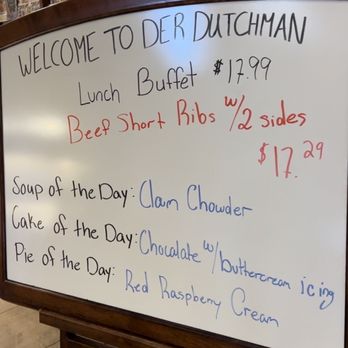 WELCOME TO DER DUTCHMAN
Lunch Buffet $17.99
Beef Short Ribs w/2 sides
$17.29
Soup of the Day: Clam Chowder
Cake of the Day: Chocalate w/buttercream icing
Pie of the Day: Red Raspberry Cream